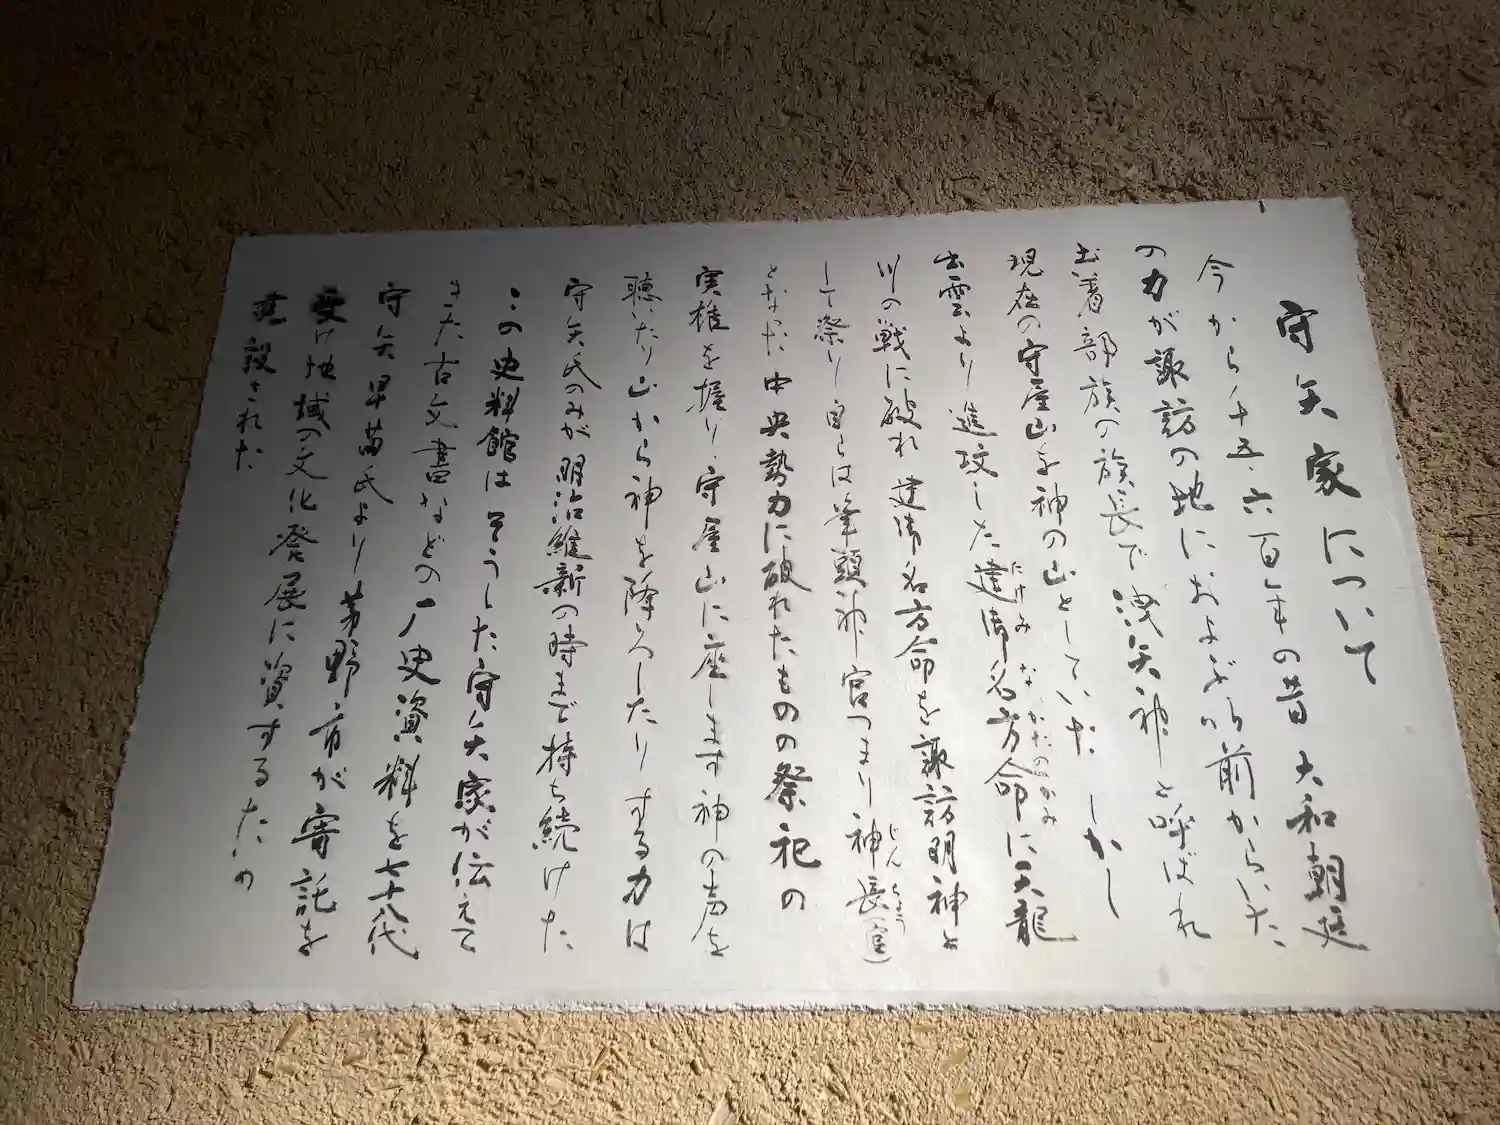 守矢家について
今から千五・六百年の昔 大和朝廷
の力が諏訪の地におよぶ以前からいた
土着部族の族長で洩矢神と呼ばれ
現在の守屋山を神の山としていた しかし
出雲より進攻した建御名方命に天龍
たけみなかたのかみ
川の戦に破れ 建御名方命を諏訪明神と
して祭り 自らは筆頭神官つまり神長(官)
じんちょう
となった 中央勢力に破れたものの祭祀の
実権を握り、守屋山に座します神の声を
聴いたり山から神を降ろしたり する力は
守矢氏のみが明治維新の時まで持ち続けた
この史料館はそうした守矢家が伝えて
きた古文書などの歴史資料を七十八代
守矢早苗氏より茅野市が寄託を
受け地域の文化発展に資するため
建設された